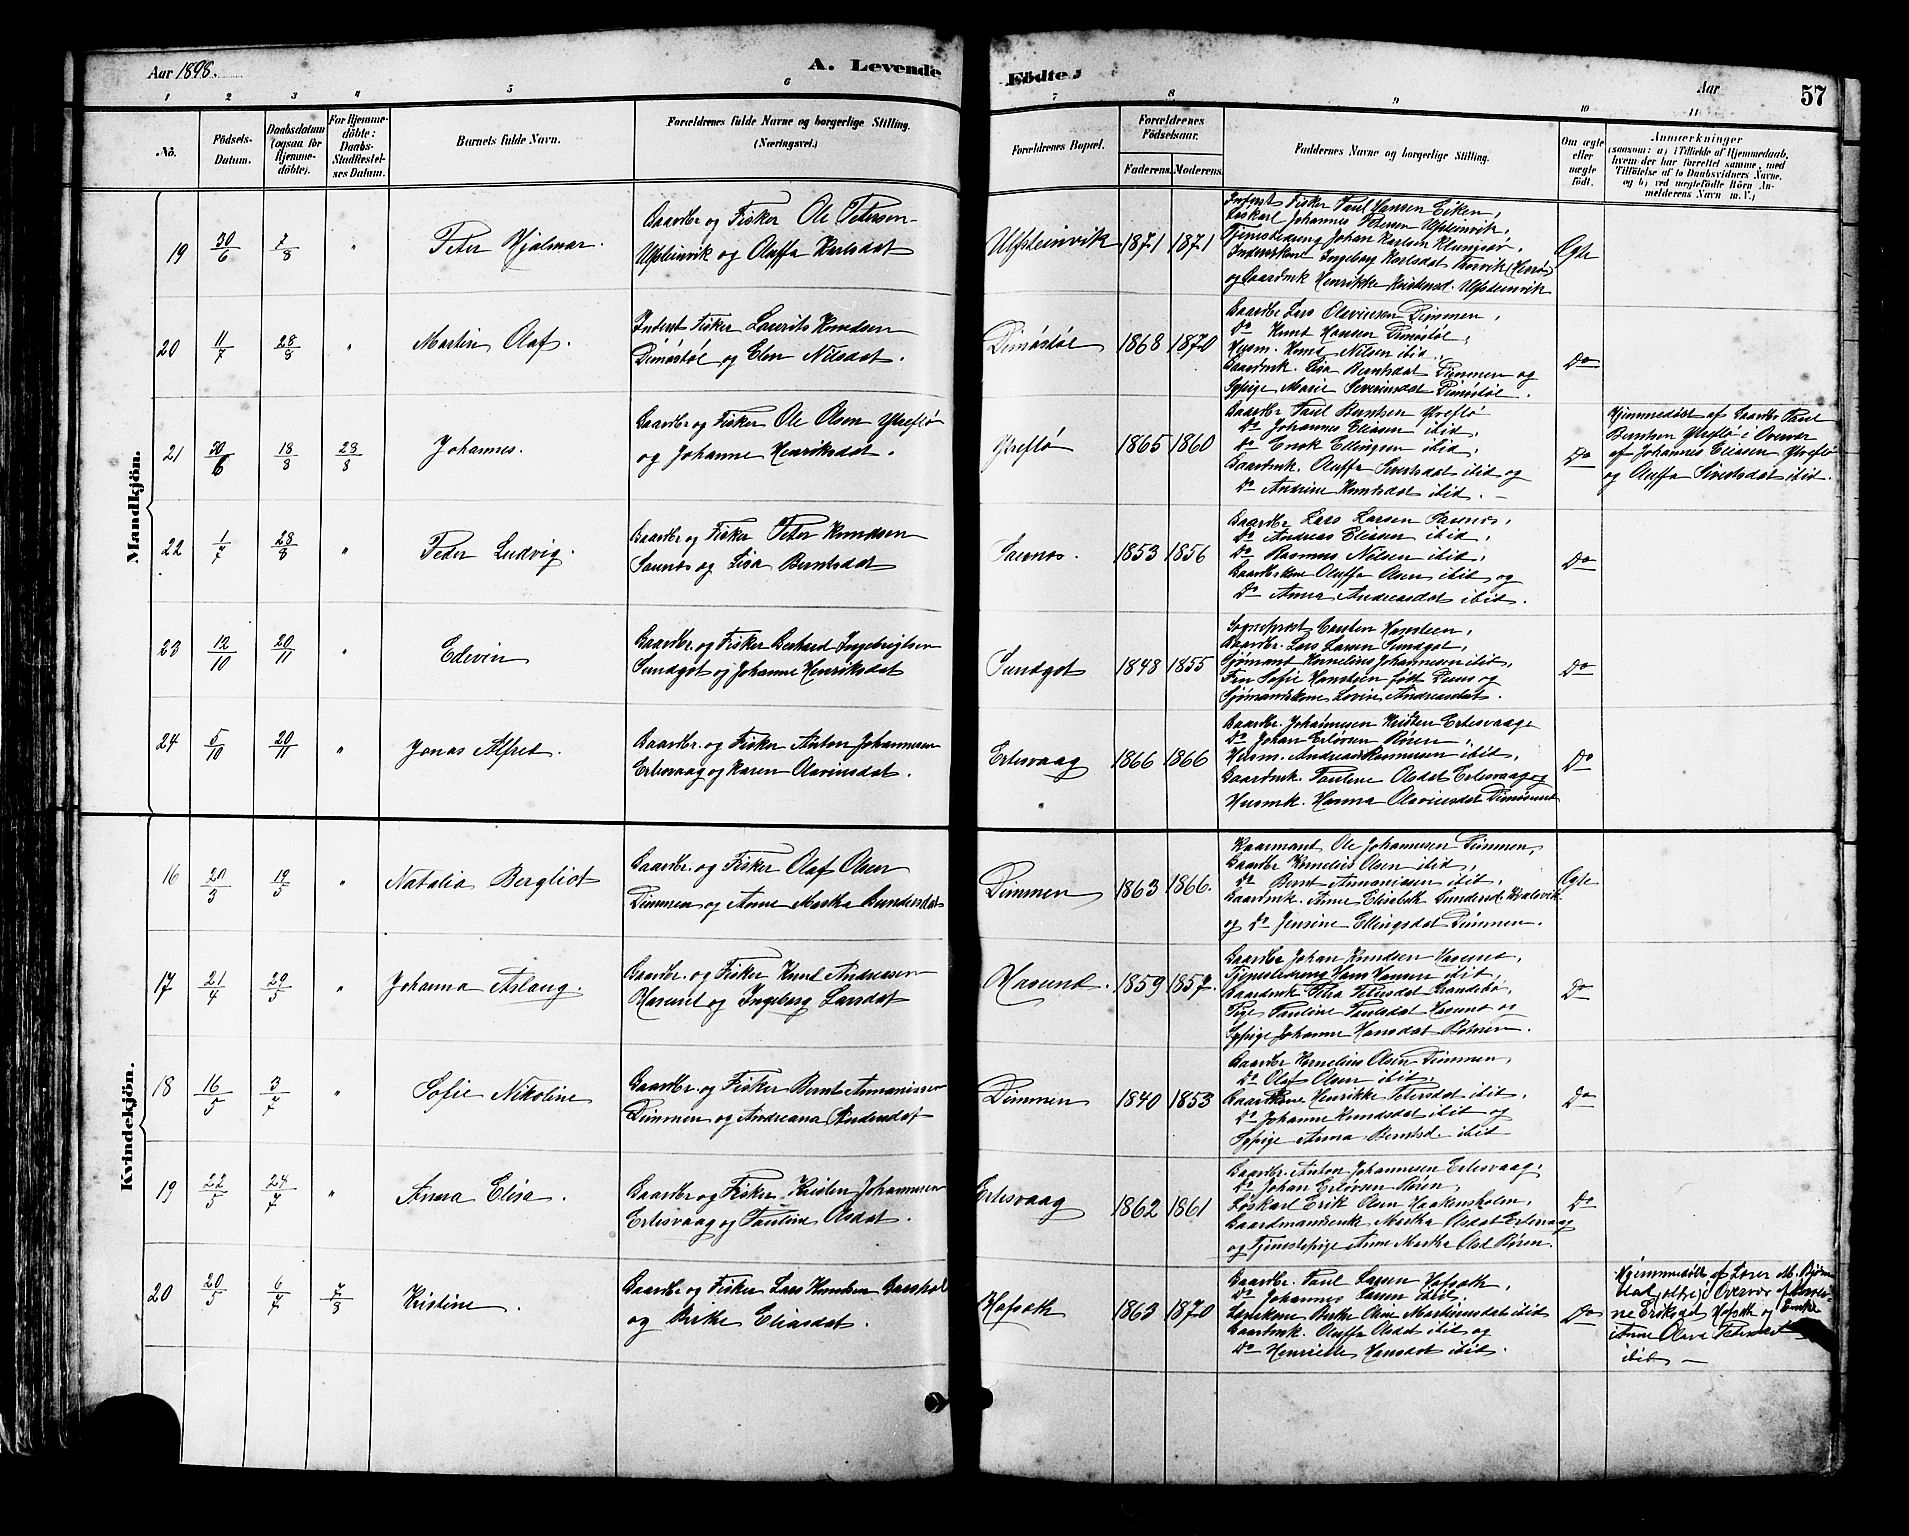 Aar 1898.
A. Levende
Födte.
Aar
57
1 2 3 4 5 6 7 8 9 10 11
No.
Födsels-
Datum.
Daabsdatum
(ogsaa for
Hjemme-
döbte).
For Hjemme-
döbte:
Daabs-
Stadfæstel-
ses Datum.
Barnets fulde Navn.
Forældrenes fulde Navne og borgerlige Stilling.
(Næringsvei.)
Forældrenes Bopæl.
Forældrenes
Födselsaar.
Faderens.
Moderens.
Faddernes Navne og borgerlige Stilling.
Om ægte
eller
uægte
födt.
Anmærkninger
(saasom: a) i Tilfælde af Hjemmedaab,
hvem der har forrettet samme, med
Tilföielse af to Daabsvidners Navne.
og b) ved uægtefödte Börn An-
melderens Navn m. V.)
Mandkjön.
19 30/6 7/8 " Peter Hjalmar.
Gaardbr og Fisker Ole Petersen
Ulfsteinvik og Oluffa Karlsdat
Ulfsteinvik 1871 1871
Inderst Fisker Paul Hansen Eiken,
Løskarl Johannes Petersen Ulfsteinvik,
Tjenestedreng Johan Karlsen Klungsør,
Inderstkone Ingeborg Karlsdat Thorvik (Herø)
og Gaardmk Henrikke Kristensd. Ulfsteinvik
Egte
20 11/7 28/8 " Martin Olaf.
Inderst Fisker Laurits Knudsen
Dimøstøl og Elen Nilsdat.
Dimøstøl 1868 1870
Gaardbr Lars Olavinsen Dimmen,
Do Knut Hansen Dimøstøl,
Husm. Knud Nilsen ibid,
Gaardmk. Lisa Berntsdat Dimmen og
Sypige Marie Severinsdat Dimøstøl.
Do
21 30/6 18/8 28/8 Johannes.
Gaardbr og Fisker Ole Olsen Yrefлø
og Johanne Henriksdat.
Yreflø 1865 1860
Gaardbr Paul Berntsen Yreflø
Do Johannes Eliasen ibid,
Do Enok Ellingsen ibid,
Gaardmk. Oluffa Sivertsdat ibid og
Do Andrine Knutsdat ibid. -
Do
Hjemmedøbt af Gaardbr Paul
Berntsen Yreflø i Overvær
af Johannes Eliasen Yreflø
og Oluffa Sivertsdat ibid.
22 1/7 28/8 " Peder Ludvig.
Gaardbr og Fisker Peter Knudsen
Saunes og Lisa Berntsdat
Saunes. 1853 1856
Gaardbr Lars Larsen Saunes,
Do Andreas Eliasen ibid,
Do Rasmus Nilsen ibid,
Gaardbrkone Oluffa Olsen ibid og
Do Anna Andreasdat ibid.
Do
23 12/10 20/11 " Edevin
Gaardbr. og Fisker Berthard Ingebrigtsen
Sundgot og Johanne Henriksdat
Sundgot 1848 1855
Sogneprest Carsten Hansteen,
Gaardbr. Lars Larsen Sundgot,
Sjømand Kornelius Johannesen ibid,
Fru Sofie Hansteen født og
Sjømandskone Lovise Andreasdat.
Do
24 5/10 20/11 " Jonas Alfred.
Gaardbr. og Fisker Anton Johannesen
Ertesvaag og Karen Olavinsdat.
Ertesvaag 1866 1866
Gaardbr. Johannesen Kristen Ertesvaage
Do Johan Erlovsen Røren,
Husm. Andreas Rasmussen ibid,
Gaardmk. Pauline Olsdat Ertesvaag og
Husmk. Hanna Olavinsdat Dimøsund
Do
Kvindekjön.
16 20/3 19/5 " Natalia Bergliot
Gaardbr. og Fisker Olaf Olsen
Dimmen og Anne Martha Gundersdat
Dimmen 1863 1866.
Kaarmand Ole Johannesen Dimmen,
Gaardbr Kornelius Olsen ibid,
Do Bernt Annaniassen ibid,
Gaardmk. Anne Elisabeth Gundersd. Hvalsvik.
og Do Jensine Ellingsdat Dimmen.
Egte
17 21/4 29/5 " Johanna Aslaug.
Gaardbr. og Fisker Knut Andreasen
Hasund og Ingeborg Larsdat
Hasund. 1859 1857.
Gaardbr Johan Knudsen Hasund,
Tjenestedreng Hans Hansen ibid,
Gaardmk Petra Petersdat Strandabø,
Pige Pauline Paulsdat Hasund og
Sypige Johanne Hansdat Botnen.
Do
18 16/5 3/7 " Sofie Nikoline
Gaardbr. og Fisker Bernt Annaniassen
Dimmen og Andreana Andersdat
Dimmen 1840 1853
Gaardbr Kornelius Olsen Dimmen,
Do Olaf Olsen ibid,
Gaardkone Henrikke Petersdat ibid,
Do Johanne Knudsdat ibid og
Sypige Anna Berntsd. ibid
Do
19 22/5 24/7 " Anna Elisa.
Gaardbr og Fisker Kristen Johannesen
Ertesvaag og Pauline Olsdat.
Ertesvaag 1862 1861
Gaardbr. Anton Johannesen Ertesvaag,
Do Johan Erlovsen Røren,
Løskarl Erik Olsen Haakonsholm,
Gaardmandsenke Martha Olsdat Ertesvaag
og Tjenestepige Anne Martha Olsd Røren.
Do
20 20/5 6/7 7/8 Kristine.
Gaardbr og Fisker Lars Knudsen
og Birthe Eliasdat.
Hofseth 1863 1870
Gaardbr. Paul Larsen Hofseth,
Do Johannes Larsen ibid,
Birthe Oline Martinusdat ibid
Gaardmk. Oluffa Olsdat ibid og
Do Henriette Hansdat ibid.
Do
Hjemmedøbt af Lærer M. Bjørn-
i Overvær af
Eriksdat Hofseth og Enke
Anne Olava Petersdat
ibid -